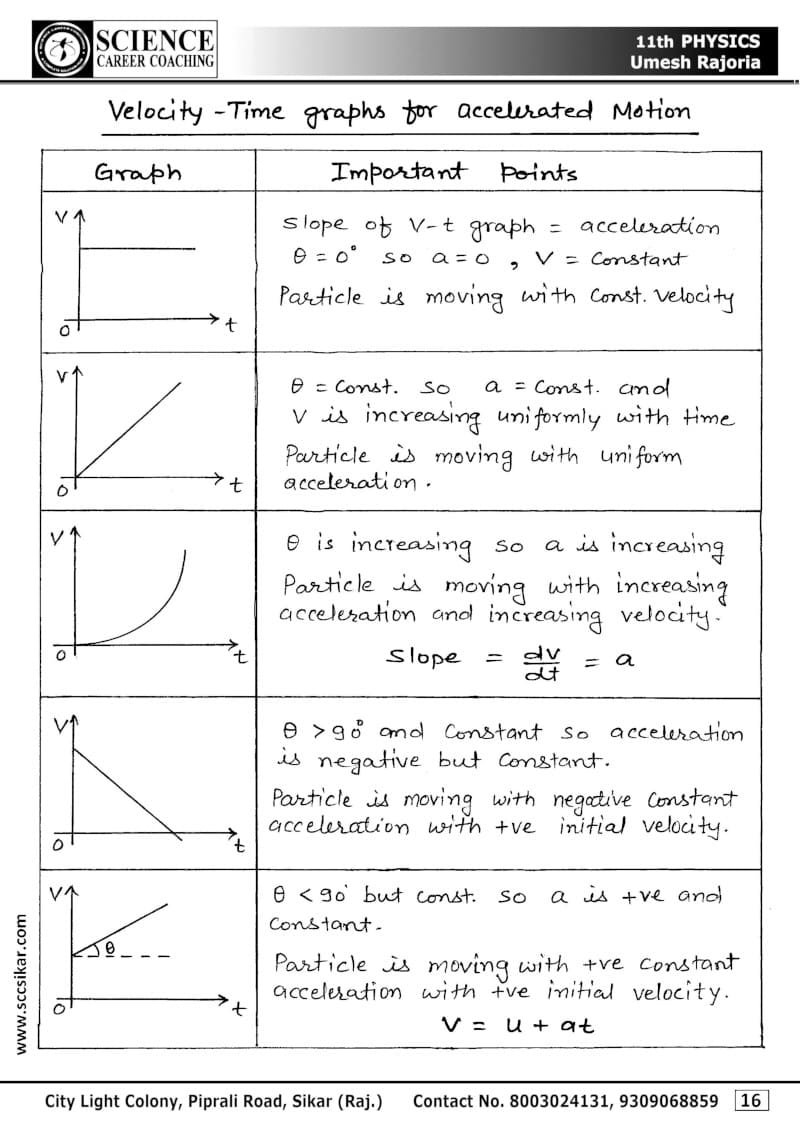 SCIENCE
CAREER COACHING
11th PHYSICS
Umesh Rajoria
Velocity - Time graphs for accelerated Motion
Graph
Important Points
V
0
t
Slope of V-t graph = acceleration
θ = 0° so a = 0 , V = Constant
Particle is moving with Const. Velocity
V
0
t
θ = Const. so a = Const. and
V is increasing uniformly with time
Particle is moving with uniform
acceleration.
V
0
t
θ is increasing so a is increasing
Particle is moving with increasing
acceleration and increasing velocity.
Slope = dV/dt = a
V
0
t
θ > 90° and Constant so acceleration
is negative but Constant.
Particle is moving with negative Constant
acceleration with +ve initial velocity.
V
θ
0
t
θ < 90° but Const. so a is +ve and
Constant.
Particle is moving with +ve Constant
acceleration with +ve initial velocity.
V = u + at
www.sccsikar.com
City Light Colony, Piprali Road, Sikar (Raj.) Contact No. 8003024131, 9309068859 16